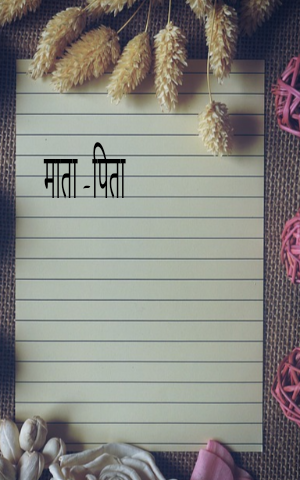 माता -पिता